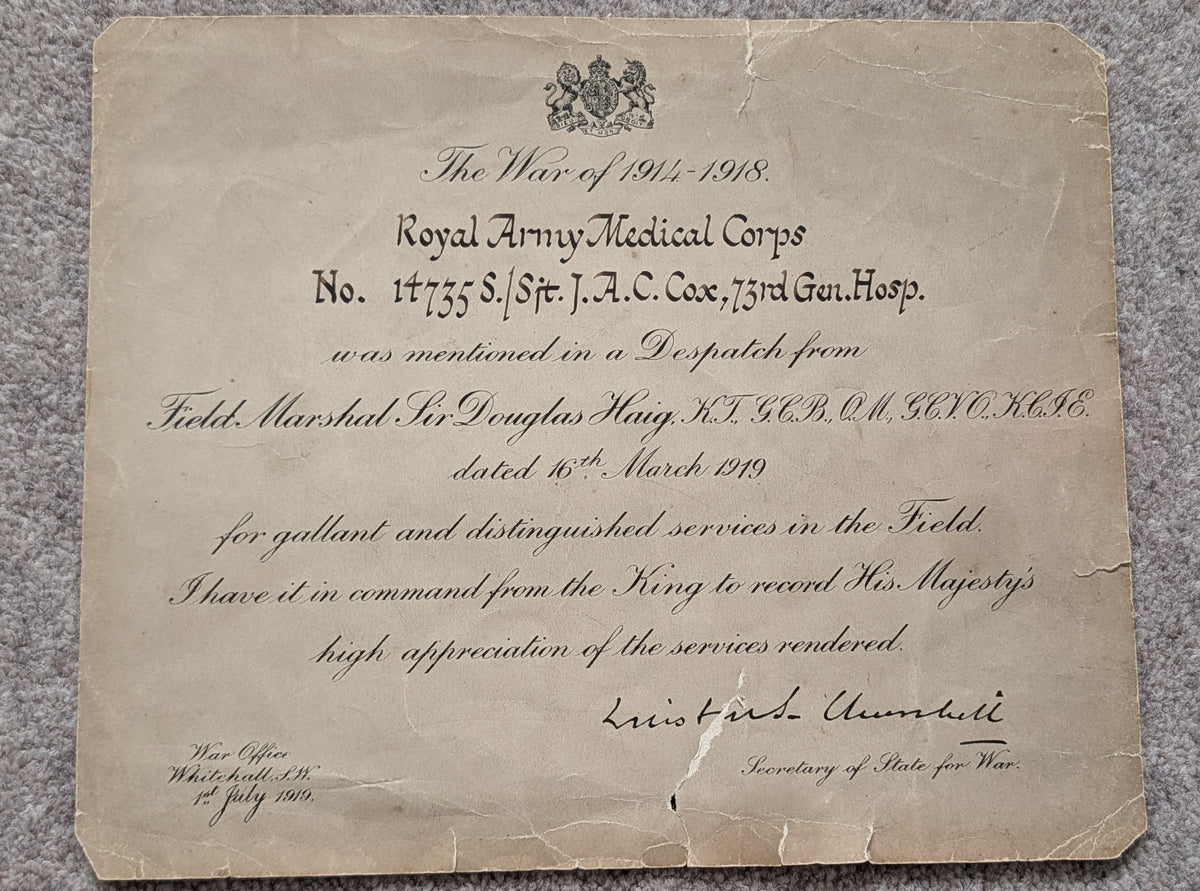 DIEU ET MON DROIT
The War of 1914-1918.
Royal Army Medical Corps
No. 14735 S./Sjt. J.A.C. Cox, 73rd Gen. Hosp.
was mentioned in a Despatch from
Field Marshal Sir Douglas Haig, K.T., G.C.B., O.M., G.C.V.O., K.C.I.E.
dated 16th March 1919
for gallant and distinguished services in the Field.
I have it in command from the King to record His Majesty's
high appreciation of the services rendered.
Winston S. Churchill
Secretary of State for War.
War Office
Whitehall, S.W.
1st July 1919.